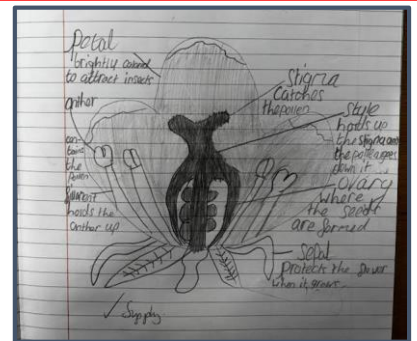 Petal
brightly colored
to attract insects
anther
the
Pollen
filament
holds the
anther up
Stigma
Catches
the pollen
Style
holds up
the stigma and
the pollen goes
down it
Ovary
where
the seeds
are formed
Sepal
Protects the flower
when it grows